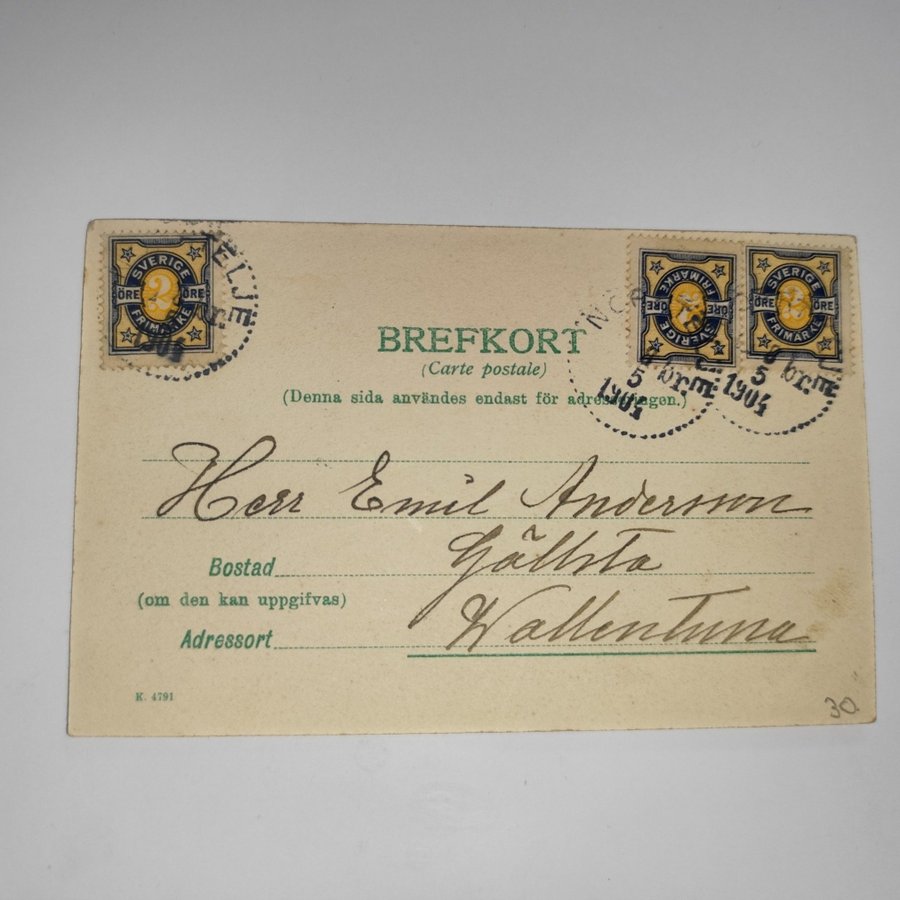 SVERIGE
ÖRE 2 ÖRE
FRIMÄRKE
ELJE
1904
SVERIGE
ÖRE 2 ÖRE
FRIMÄRKE
SVERIGE
ÖRE 2 ÖRE
FRIMÄRKE
NOR
8
5
1904
8
5
1904
BREFKORT
(Carte postale)
(Denna sida användes endast för adresseringen.)
Herr Emil Andersson
Gällsta
Bostad
(om den kan uppgifvas)
Wallentuna
Adressort
K. 4791
30